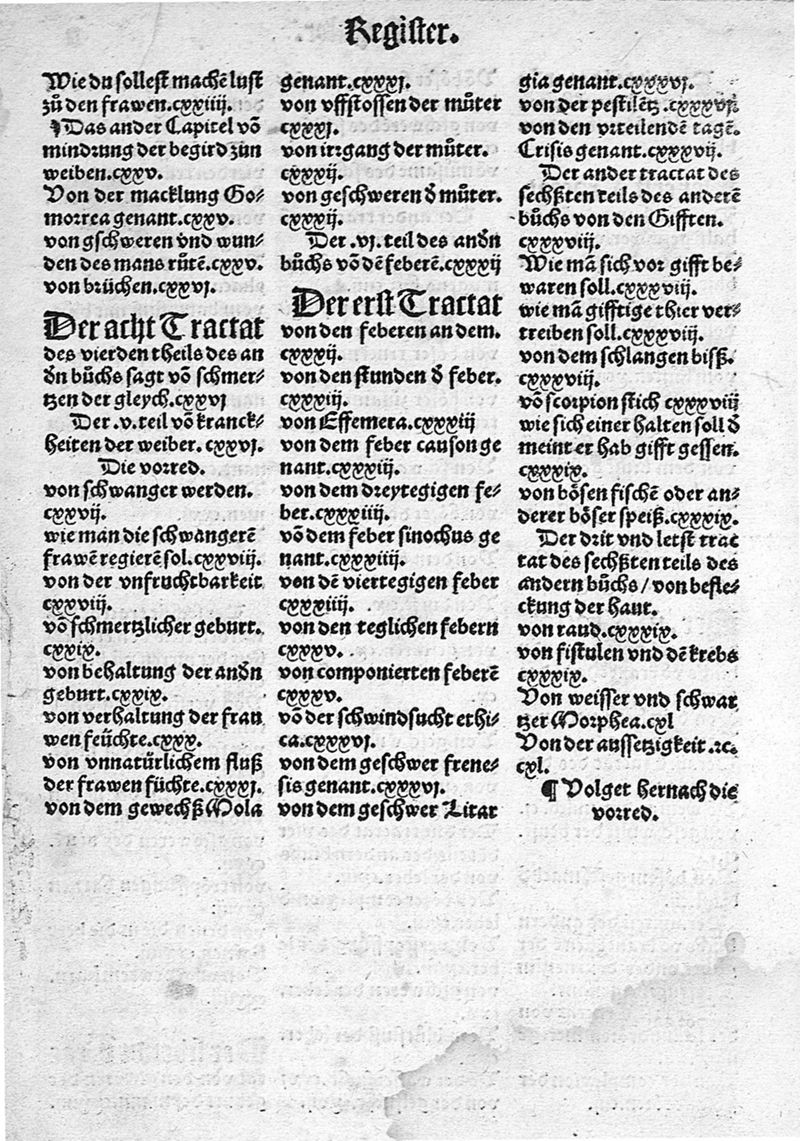 Register.
Wie du sollest machē lust
zů den frawen.cxxiiij.
¶Das ander Capitel vō
mindrung der begird zůn
weiben.cxxv.
Von der macklung Go-
morrea genant.cxxv.
von gschweren vnd wun-
den des mans růtē.cxxv.
von brüchen.cxxvj.
Der acht Tractat
des vierden theils des an
dn bůchs sagt vō schmer-
tzen der gleych.cxxvj
Der .v. teil vō kranck-
heiten der weiber. cxxvj.
Die vorred.
von schwanger werden.
cxxvij.
wie man die schwangerē
frawē regierē sol.cxxviij.
von der vnfruchtbarkeit
cxxviij.
vō schmertzlicher geburt.
cxxix.
von behaltung der andn
geburt.cxxix.
von verhaltung der frau
wen feüchte.cxxx.
von vnnatürlichem fluß
der frawen füchte.cxxxj.
von dem gewechß Mola
genant.cxxxj.
von vffstossen der můter
cxxxj.
von irrgang der můter.
cxxxij.
von geschweren d můter.
cxxxij.
Der .vj. teil des andn
bůchs vō dē feberē.cxxxij
Der erst Tractat
von den feberen an dem.
cxxxij.
von den stunden d feber.
cxxxiij.
von Effemera.cxxxiij
von dem feber causon ge
nant.cxxxiij.
von dem dreytegigen fe-
ber.cxxxiiij.
vō dem feber sinochus ge
nant.cxxxiiij.
von dē viertegigen feber
cxxxiiij.
von den teglichen febern
cxxxv.
von componierten feberē
cxxxv.
vō der schwindsucht ethi-
ca.cxxxvj.
von dem geschwer frene-
sis genant.cxxxvj.
von dem geschwer Litar
gia genant.cxxxvj.
von der pestilētz.cxxxvij
von den vrteilendē tagē.
Crisis genant.cxxxvij.
Der ander tractat des
sechßten teils des anderē
bůchs von den Gifften.
cxxxviij.
Wie mā sich vor gifft be-
waren soll.cxxxviij.
wie mā gifftige thier ver-
treiben soll.cxxxviij.
von dem schlangen bisß.
cxxxviij.
vō scorpion stich cxxxviij
wie sich einer halten soll d
meint er hab gifft gessen.
cxxxix.
von bösen fischē oder an-
derer böser speiß.cxxxix.
Der drit vnd letst trac
tat des sechßten teils des
andern bůchs / von befle-
ckung der haut.
von raud.cxxxix.
von fistulen vnd dē krebs
cxxxix.
Von weisser vnd schwar
tzer Morphea.cxl
Von der aussetzigkeit .ꝛc.
cxl.
¶ Volget hernach die
vorred.